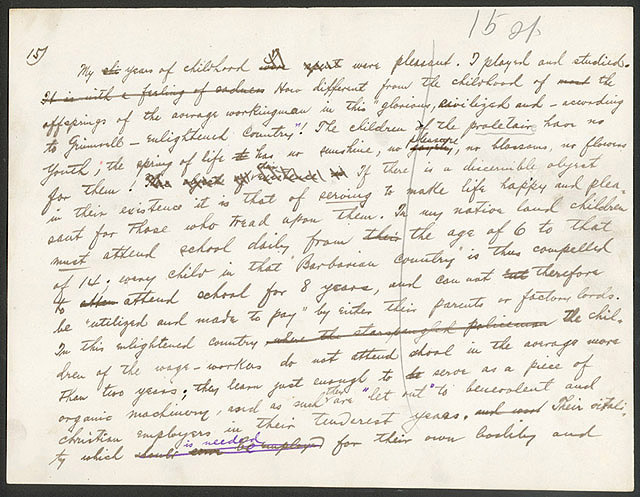 15 gp
15)
My years of childhood were pleasant. I played and studied.
It is with a feeling of sadness How different from the childhood of most the
offsprings of the average workingman in this "glorious, civilized and – according
to Grinnell – enlightened country"! The children of the proletaire have no
Youth; the spring of life has no sunshine, no pleasure, no blossoms, no flowers
for them! The If there is a discernible object
in their existence it is that of serving to make life happy and plea-
sant for those who tread upon them. In my native land children
must attend school daily from their the age of 6 to that
of 14. every child in that "Barbarian Country" is thus compelled
to attend school for 8 years, and can not but therefore
be "utilized and made to pay" by either their parents or factory lords.
In this enlightened country where the starspangled policeman the chil-
dren of the wage-workers do not attend shool in the average more
than two years; they learn just enough to serve as a piece of
organic machinery, and as such they are "let out" to benevolent and
christian employers in their tenderest years. and Their vitali-
ty which is needed be employed for their own bodily and